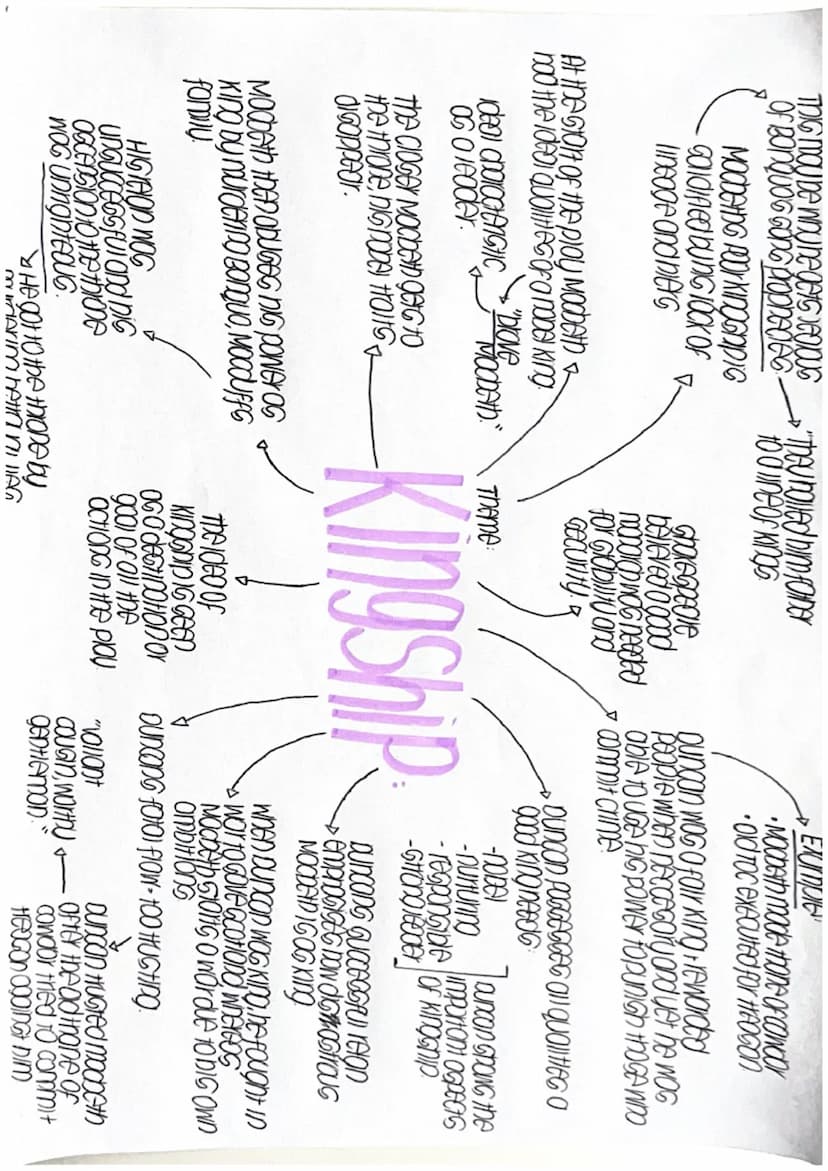 Theme:
Kingship:
This may be more false versus
of Banquos sons prophecies
"They hailed him father
to a line of kings
Macbeths poor kingship is
confirmed by his lack of
lineage and heirs
At the start of the play Macbeth
had the ideal qualities of a noble king
"brave
Macbeth"
ideal characteristic
as a leader.
the closer Macbeth gets to
the throne his noble traits
disappear.
Macbeth then abuses his power as
king by murdering Banquo, Macduffs
family.
His reign was
unsuccessful and his
ascension to the throne
was unrighteous.
the idea of
kingship is seen
as a destination or
goal of all the
actions in the play
Shakespeare
believed a good
monarch was needed
for stability and
security
Duncan was a fair king + rewarded
people when necessary and yet he was
able to use his power to punish those who
commit crime
Example:
• Macbeth made thane of cawdor
• old toc executed for treason
Duncan possesses all qualities a
good king needs:
-noble
-nurturing
-responsible
-strong leader
Duncan shows the
important aspects
of kingship
Duncans successful reign
emphasises how disastrous
Macbeth is as king
When Duncan was king he fought in
war to save scotland whereas
Macbeth starts a war due to his own
ambitions
Duncans fatal flaw - too trusting.
Duncan trusted macbeth
after the old thane of
cawdor tried to commit
treason against him
"valiant
cousin, worthy
gentleman."